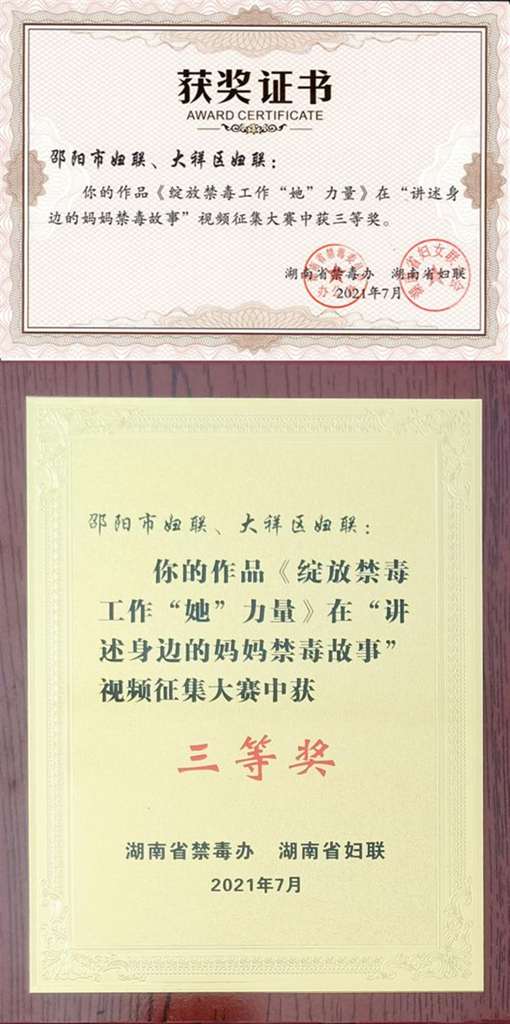 获奖证书
AWARD CERTIFICATE
邵阳市妇联、大祥区妇联：
你的作品《绽放禁毒工作“她”力量》在“讲述身
边的妈妈禁毒故事”视频征集大赛中获三等奖。
湖南省禁毒办 湖南省妇联
2021年7月
邵阳市妇联、大祥区妇联：
你的作品《绽放禁毒
工作“她”力量》在“讲
述身边的妈妈禁毒故事”
视频征集大赛中获
三等奖
湖南省禁毒办 湖南省妇联
2021年7月